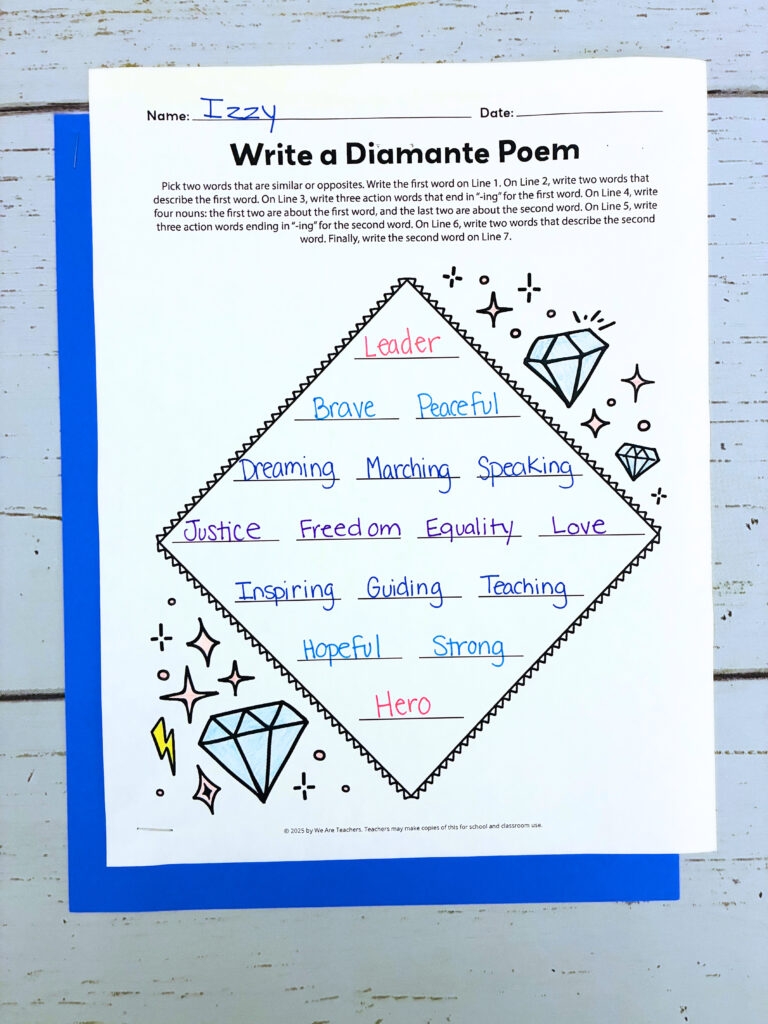 Name: Izzy Date:
Write a Diamante Poem
Pick two words that are similar or opposites. Write the first word on Line 1. On Line 2, write two words that
describe the first word. On Line 3, write three action words that end in "-ing" for the first word. On Line 4, write
four nouns: the first two are about the first word, and the last two are about the second word. On Line 5, write
three action words ending in "-ing" for the second word. On Line 6, write two words that describe the second
word. Finally, write the second word on Line 7.
Leader
Brave Peaceful
Dreaming Marching Speaking
Justice Freedom Equality Love
Inspiring Guiding Teaching
Hopeful Strong
Hero
© 2025 by We Are Teachers. Teachers may make copies of this for school and classroom use.